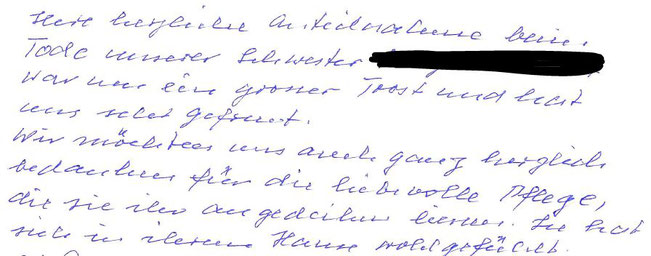 Ihre herzliche Anteilnahme beim
Tode unserer Schwester
war uns ein grosser Trost und hat
uns sehr gefreut.
Wir möchten uns auch ganz herzlich
bedanken für die liebevolle Pflege,
die sie ihr angedeihen liessen. Sie hat
sich in ihrem Hause wohlgefühlt.